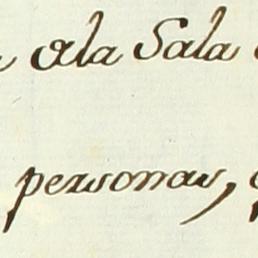 ala Sala
personas,